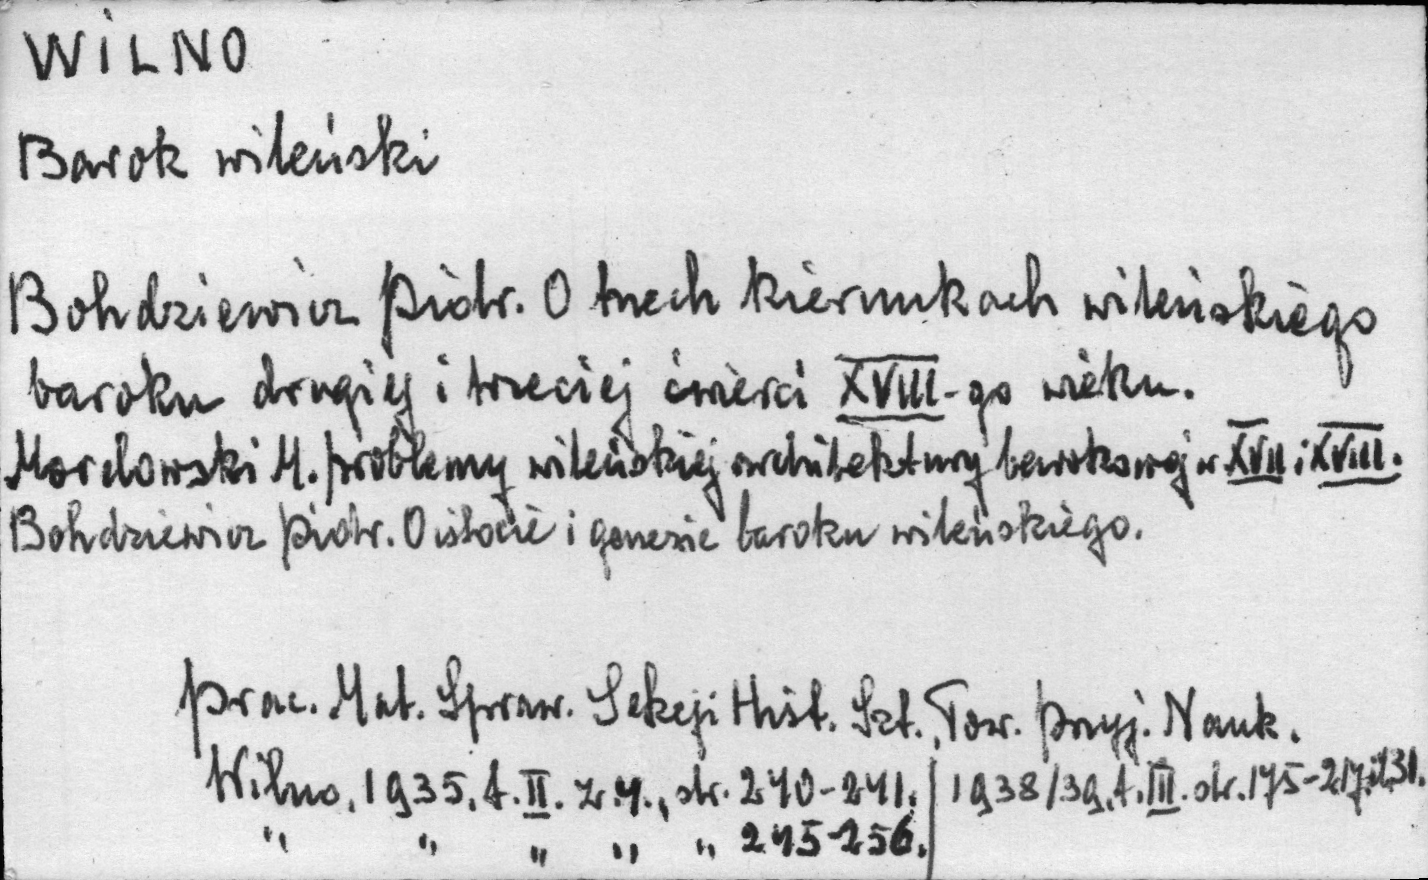 WILNO
Barok wileński
Bohdziewicz Piotr. O trzech kierunkach wileńskiego
baroku drugiej i trzeciej ćwierci XVIII-go wieku.
Morelowski M. Problemy wileńskiej architektury barokowej w XVII i XVIII.
Bohdziewicz Piotr. O istocie i genezie baroku wileńskiego.
Prac. Mat. Spraw. Sekcji Hist. Szt. Tow. Przyj. Nauk.
Wilno, 1935, t. II. z. 4., str. 240-241. / 1938/39, t. III. str. 175-217, il. 31.
" " " " " 245-256.